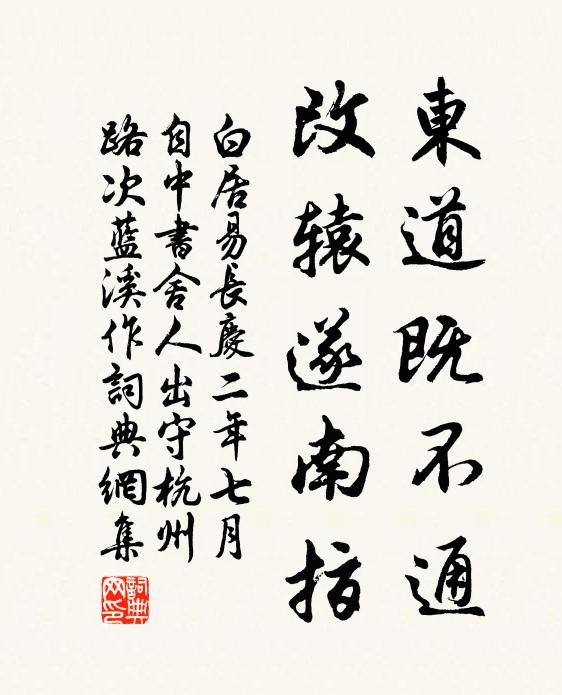 東道既不通
改辕遂南指
白居易長慶二年七月
自中書舍人出守杭州
路次藍溪作詞典網集
詞典网印